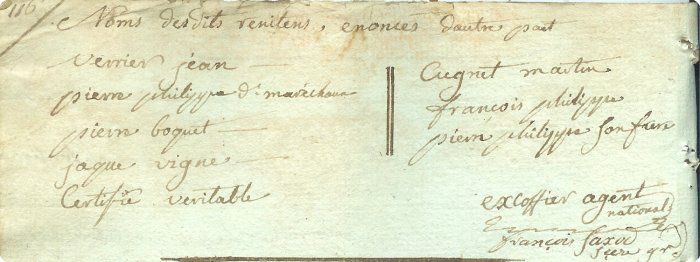 116
Noms desdits renitens, enoncés dautre part
verrier jean
pierre philippe dt maréchaux
pierre boquet
jaque vigne
Certifié veritable
Cugnet martin
françois philippe
pierre philippe son frere
excoffier agent
national
françois